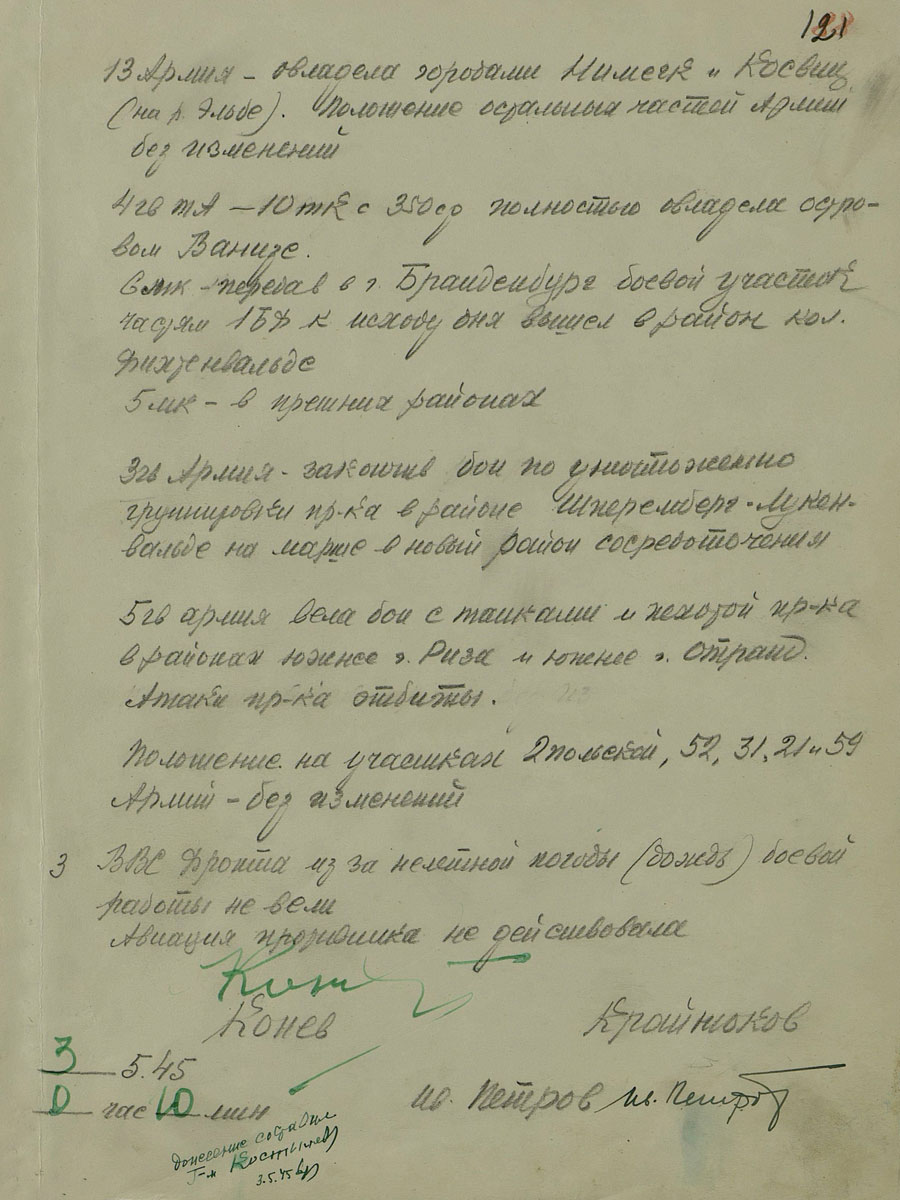 121
13 Армия – овладела городами Нимегк и Косвиц
(на р. Эльбе). Положение остальных частей Армии
без изменений
4гв ТА – 10тк с 350сд полностью овладела остро-
вом Ванизе.
6мк – передав в г. Бранденбург боевой участок
частям 1БФ к исходу дня вышел в район кол.
Фихтенвальде
5мк – в прежних районах
3гв Армия – закончив бои по уничтожению
группировки пр-ка в районе Шперемберг – Лукен-
вальде на марше в новый район сосредоточения
5гв армия вела бои с танками и пехотой пр-ка
в районах южнее г. Риза и южнее г. Отранд.
Атаки пр-ка отбиты.
Положение на участках 2польской, 52, 31, 21 и 59
Армий – без изменений
3 ВВС Фронта из за нелетной погоды (дождь) боевой
работы не вели
Авиация противника не действовала
Конев
Крайнюков
3 5.45
0 час 10 мин
Ив. Петров Ив. Петров
донесение составил
Г-м Костылев
3.5.45